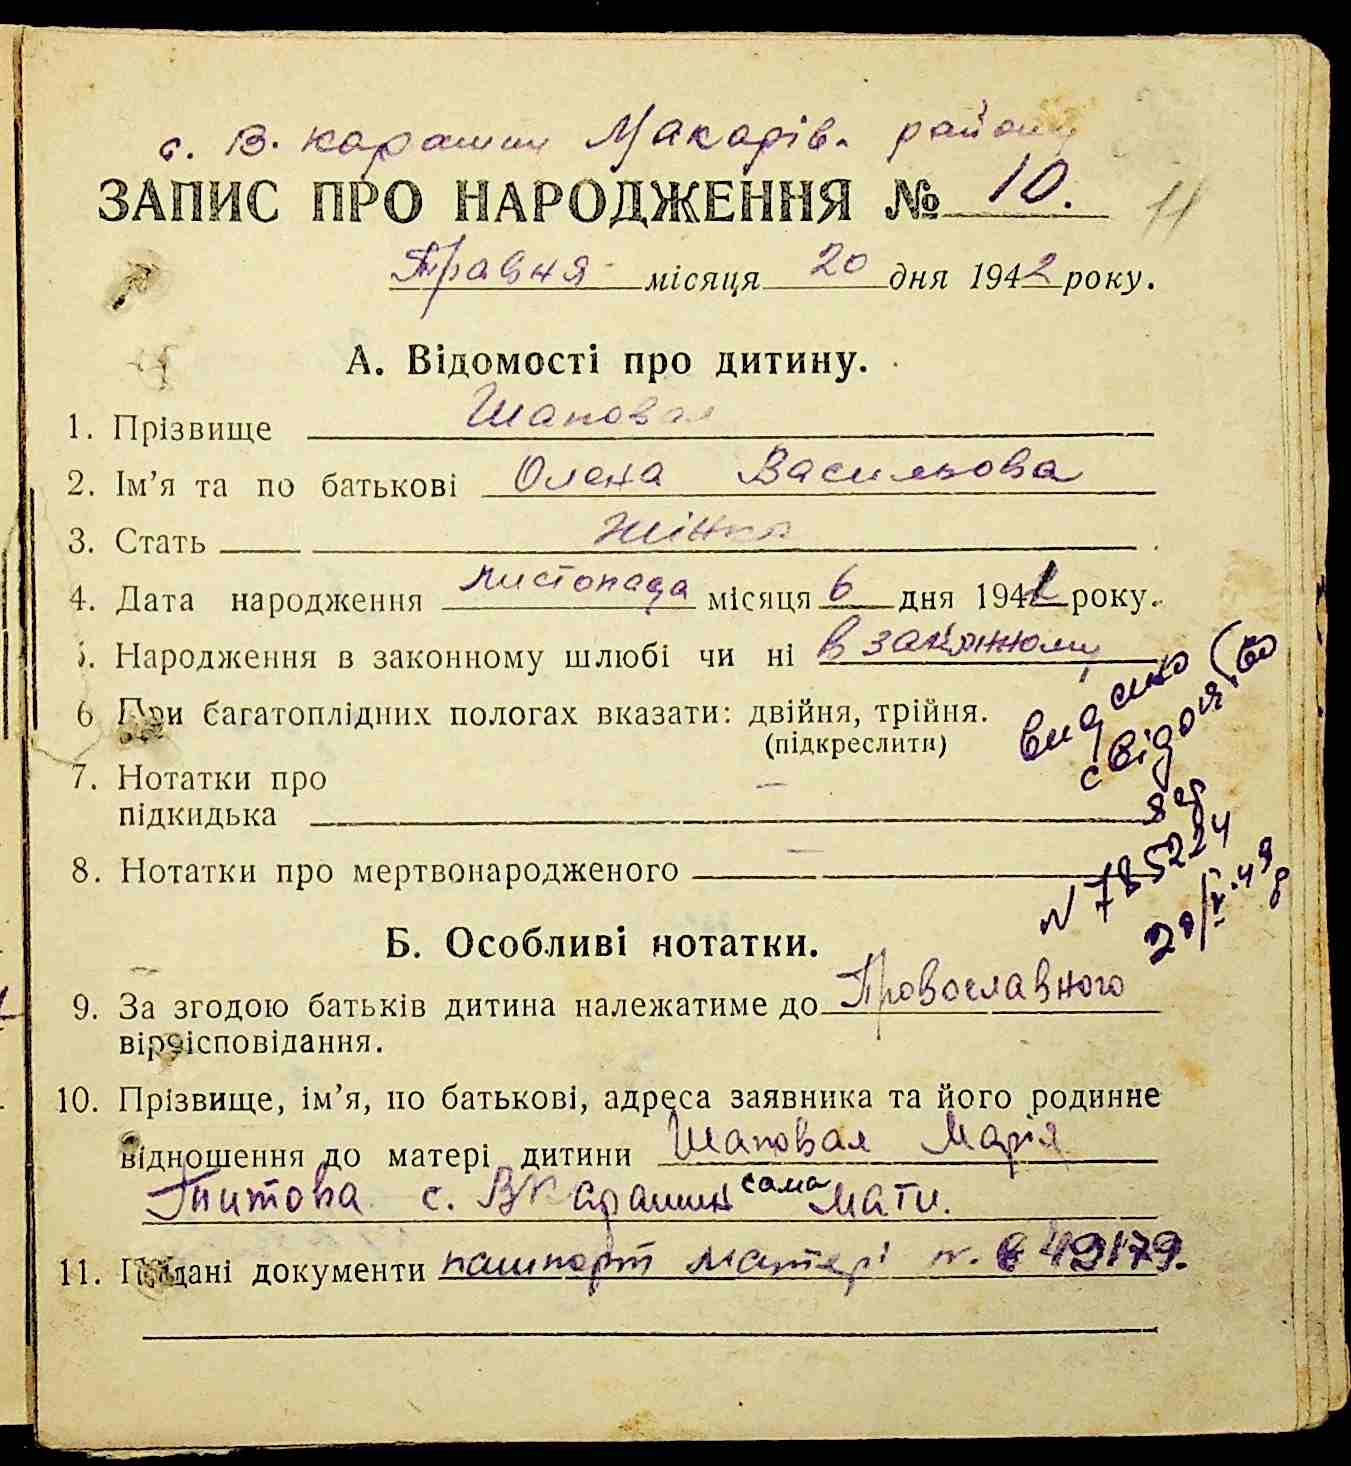 с. В. карашин Макарів. району
ЗАПИС ПРО НАРОДЖЕННЯ № 10. 11
Травня місяця 20 дня 1942 року.
А. Відомості про дитину.
1. Прізвище Шаповал
2. Ім’я та по батькові Олена Васильова
3. Стать жінка
4. Дата народження листопада місяця 6 дня 1941 року.
5. Народження в законному шлюбі чи ні в законному
6 При багатоплідних пологах вказати: двійня, трійня.
(підкреслити)
7. Нотатки про
підкидька —
8. Нотатки про мертвонародженого —
видано
свідоц
N 785224
Б. Особливі нотатки.
9. За згодою батьків дитина належатиме до Провославного
віроісповідання.
10. Прізвище, ім’я, по батькові, адреса заявника та його родинне
відношення до матері дитини Шаповал Марія
Титова с. В Карашин сама мати.
11. Подані документи пашпорт матері N. 649179.